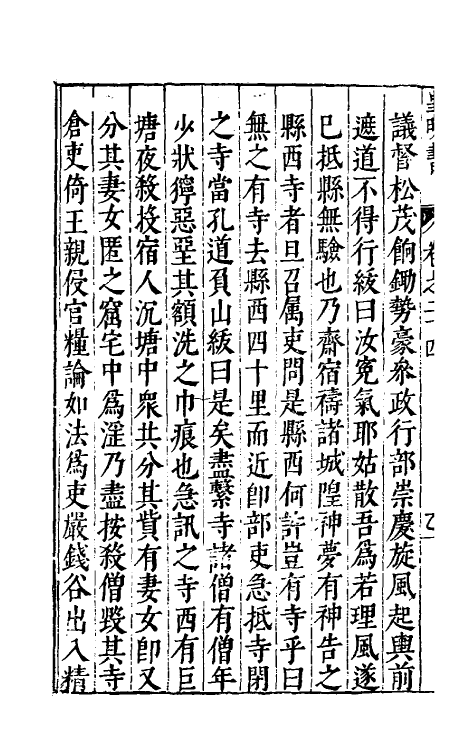 皇明書 卷之二十四
議督松茂餉鋤勢豪叅政行部崇慶旋風起輿前
遮道不得行紱曰汝寃氣耶姑散吾爲若理風遂
巳抵縣無驗也乃齋宿禱諸城隍神夢有神告之
縣西寺者旦召属吏問是縣西何許豈有寺乎曰
無之有寺去縣西四十里而近卽部吏急抵寺閉
之寺當孔道負山紱曰是矣盡繫寺諸僧有僧年
少狀獰惡堊其額洗之巾痕也急訊之寺西有巨
塘夜殺投宿人沉塘中衆共分其貲有妻女卽又
分其妻女匿之窟宅中爲滛乃盡按殺僧毀其寺
倉吏倚王親侵官糧論如法爲吏嚴錢谷出入精